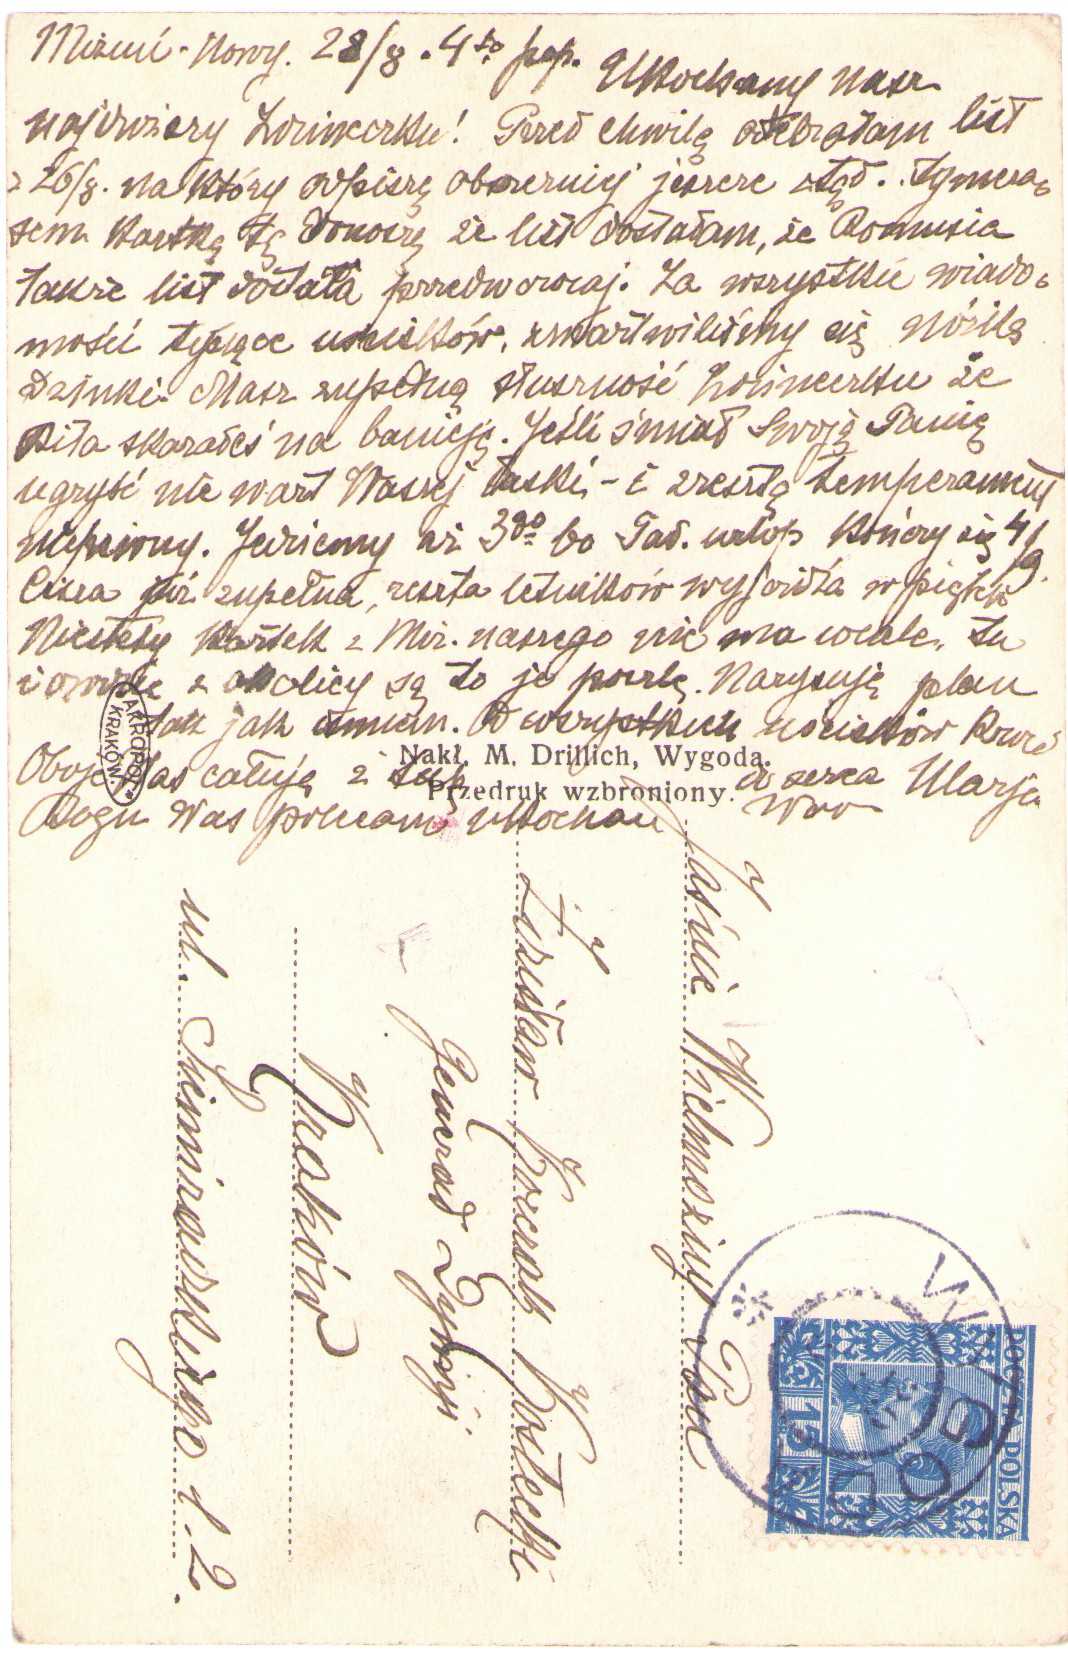 Mizuń-Nowy. 28/8. 4to pop. Ukochany nasz
najdroższy Zdzineczku! Przed chwilą odebrałam list
z 26/8. na który odpiszę obszerniej jeszcze stąd. Tymcza-
sem kartką tą donoszę że list dostałam, że Romusia
także list dostała przedwczoraj. Za wszystkie wiado-
mości tysiące uścisków, zmartwiliśmy się nóżką
Dzinki. Masz zupełną słuszność że
skazałeś na banicję. Jeśli śmiał Swoją Panię
ugryść nie wart Waszej łaski, - i zresztą temperament
niepewny. Jedziemy aż 3go bo Tad. urlop kończy się 4/9.
Cisza już zupełna, reszta letników wyjeżdża w piątek
Niestety kartek z Miz. naszego nie ma wcale, tu
i owdzie z okolicy są to je poszlę. Narysuję plan
tak jak umiem. Od wszystkich uścisków
Oboje Was całuję z serca Marja
Bogu Was polecam ukochan
"AKROPOL" KRAKÓW.
Nakł. M. Drillich, Wygoda.
Przedruk wzbroniony.
Jaśnie Wielmożny Pan
Zdzisław Korczak Kostecki
Generał Dywizji
Kraków
ul. Siemiradzkiego l. 2.
WYGODA
POCZTA POLSKA
15